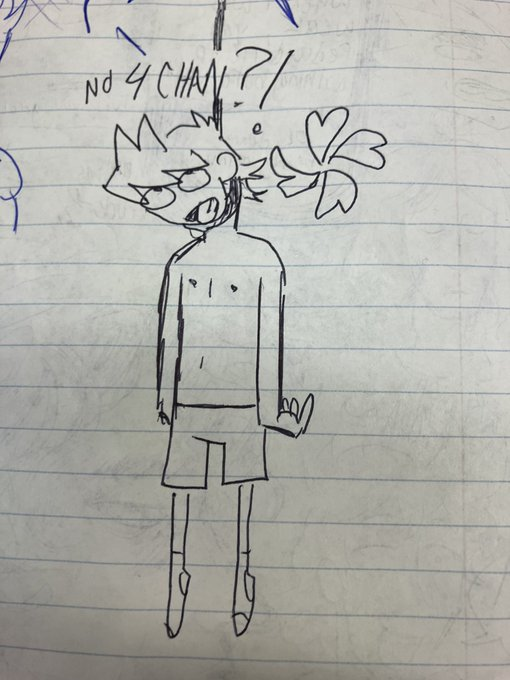 NO 4 CHAN?!